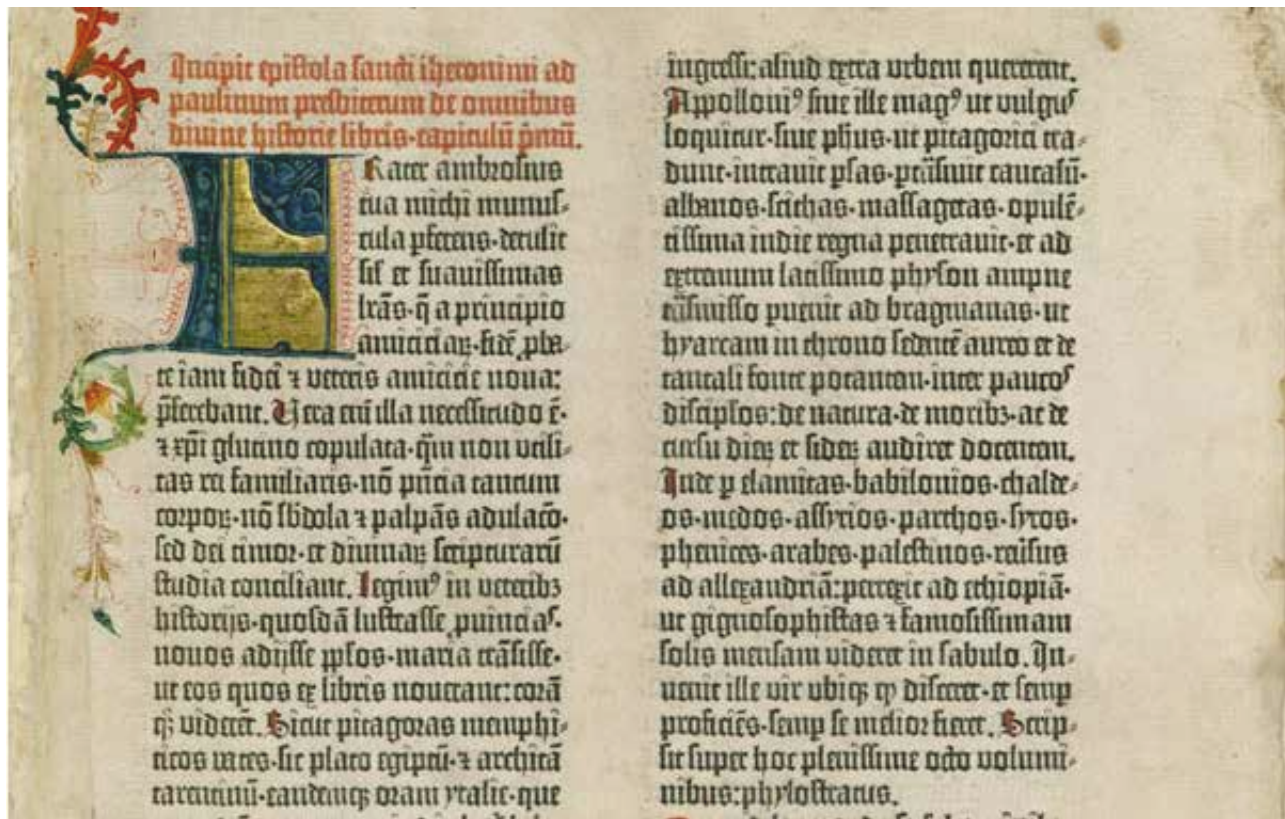 Incipit epistola sancti iheronimi ad
paulinum presbiterum de omnibus
divine historie libris·capitulū p̄mū.
Frater ambrosius
tua michi munus-
cula pferens·detulit
sil' et suavissimas
lrās·q̄ a principio
amiciciaꝝ·fidē ꝓba-
te iam fidei ⁊ veteris amicicie nova:
p̄ferebant. Vera eni illa necessitudo ē·
⁊ xp̄i glutino copulata·qm̄ non utili-
tas rei familiaris·nō p̄ncia tantum
corpoꝝ·nō sbdola ⁊ palpās adulacō·
sed dei timor·et divinaꝝ scripturarū
studia conciliant. Legimꝰ in veteribꝫ
historijs·quosdā lustrasse ꝓuīncias·
novos adijsse pplos·maria trāsisse·
ut eos quos ex libris noverant: corā
qꝫ viderēt. Sicut pitagoras memphi-
ticos vates·sic plato egiptū·⁊ architā
tarentinū·eandemqꝫ oram ytalie·que
ingressi: aliud extra urbem quererent.
Appolloniꝰ sive ille magꝰ ut vulgus
loquitur·sive phūs·ut pitagorici tra-
dunt·intravit psas·ptrāsivit caucasū·
albanos·scithas·massagetas·opulē-
tissima indie regna penetravit·et ad
extremum latissimo physon ampne
trāsmisso pvenit ad bragmanas·ut
hyarcam in throno sedentē aureo et de
tantali fonte potantem·inter paucos
discipls̄os: de natura·de moribꝫ·ac de
cursu dieꝝ et sideꝝ audiret docentem.
Inde p elamitas·babilonios·chalde-
os·medos·assyrios·parthos·syros·
phenices·arabes·palestinos·reversus
ad allexandriā: perrexit ad ethiopiā·
ut gignosophistas ⁊ famosissimam
solis mensam videret in sabulo. In-
venit ille vir ubiqꝫ qꝫ disceret·et semp
proficiēs·semp se melior fieret. Scrip-
sit super hoc plenissime octo volumi-
nibus: phylostratus.